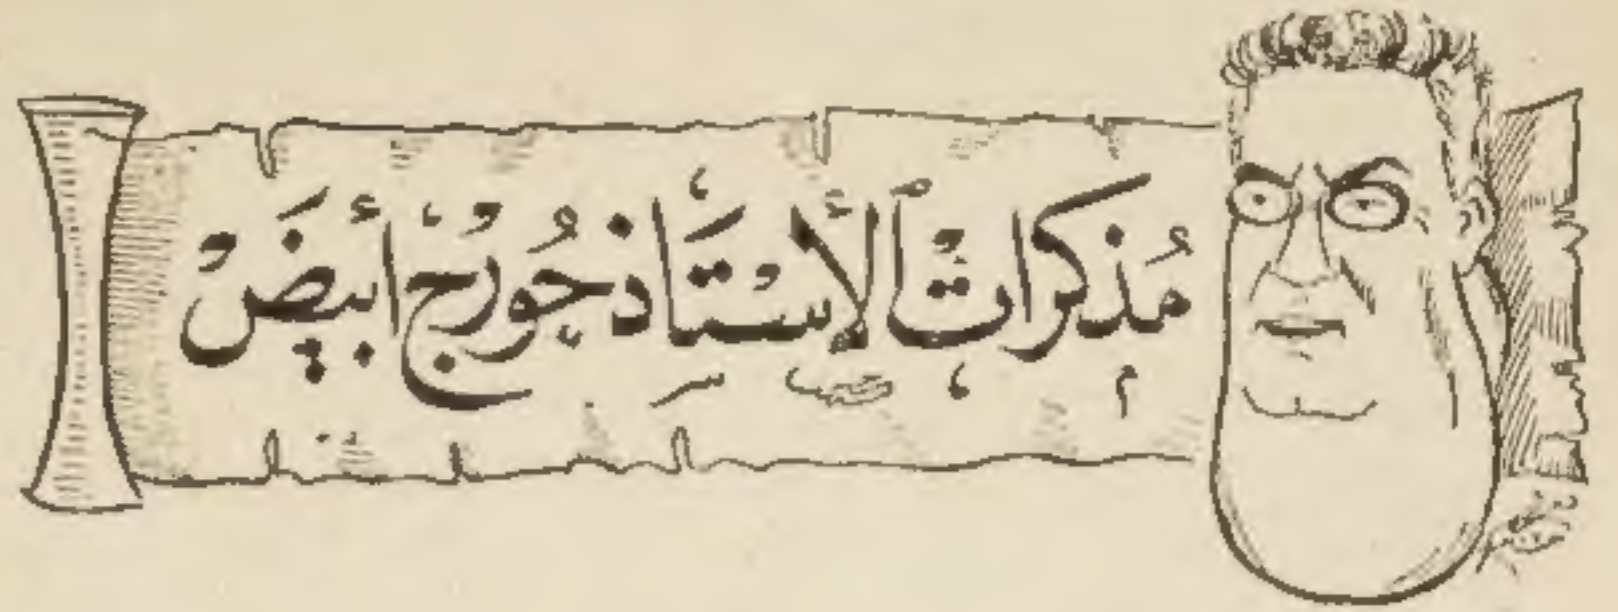 مُذكرات الأستاذ جُورج أبيَض